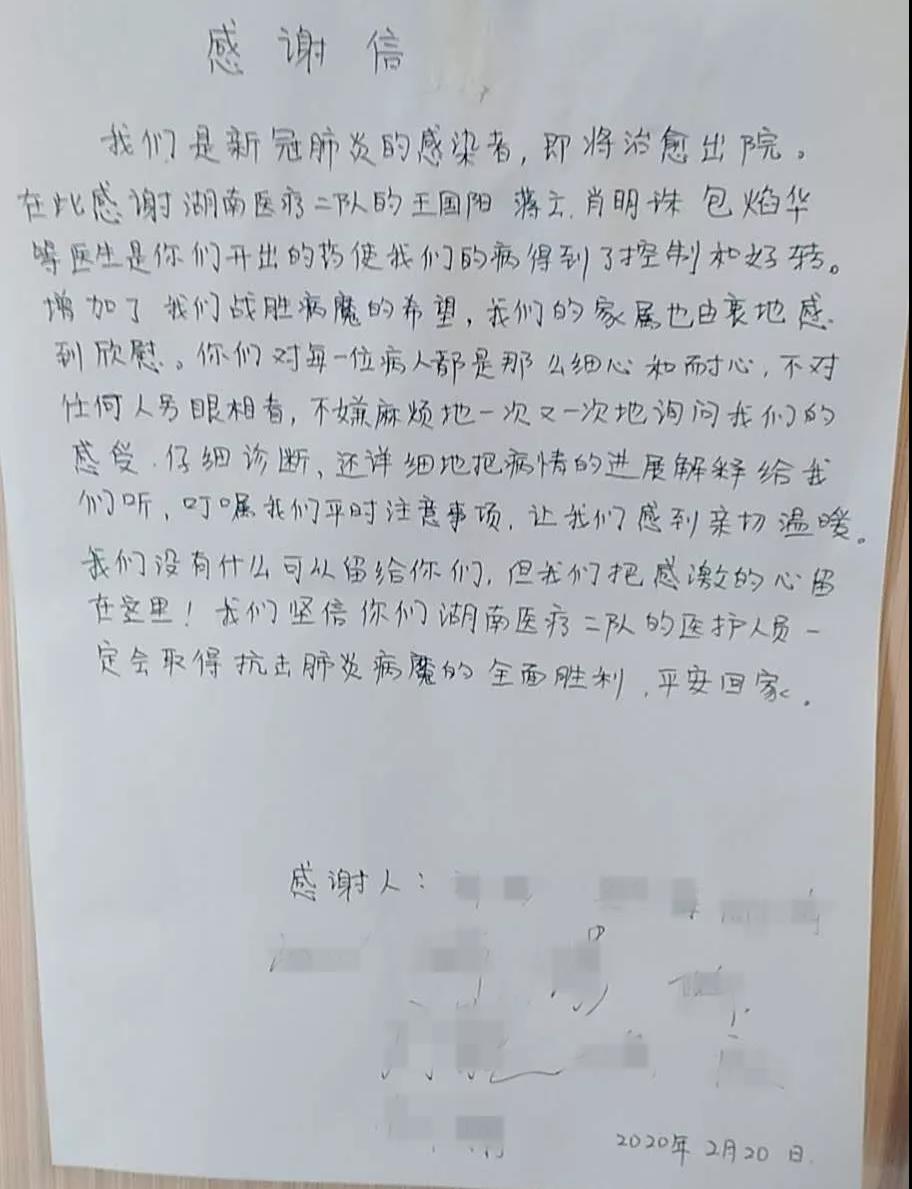 感谢信
我们是新冠肺炎的感染者,即将治愈出院。
在此感谢湖南医疗二队的王国阳 蒋云.肖明珠 包焰华
等医生是你们开出的药使我们的病得到了控制和好转。
增加了我们战胜病魔的希望,我们的家属也由衷地感
到欣慰。你们对每一位病人都是那么细心和耐心,不对
任何人另眼相看,不嫌麻烦地一次又一次地询问我们的
感受.仔细诊断,还详细地把病情的进展解释给我
们听,叮嘱我们平时注意事项,让我们感到亲切温暖。
我们没有什么可以留给你们,但我们把感激的心留
在这里!我们坚信你们湖南医疗二队的医护人员一
定会取得抗击肺炎病魔的全面胜利,平安回家。
感谢人:
2020年2月20日.